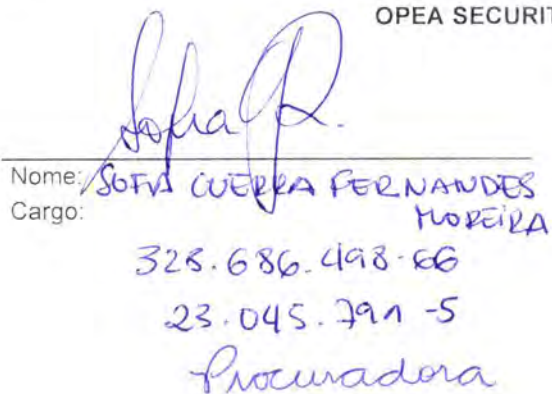 OPEA SECURIT
Sofia
Nome: SOFIA GUERRA FERNANDES
Cargo: MOREIRA
328.686.498-66
23.045.791-5
Procuradora